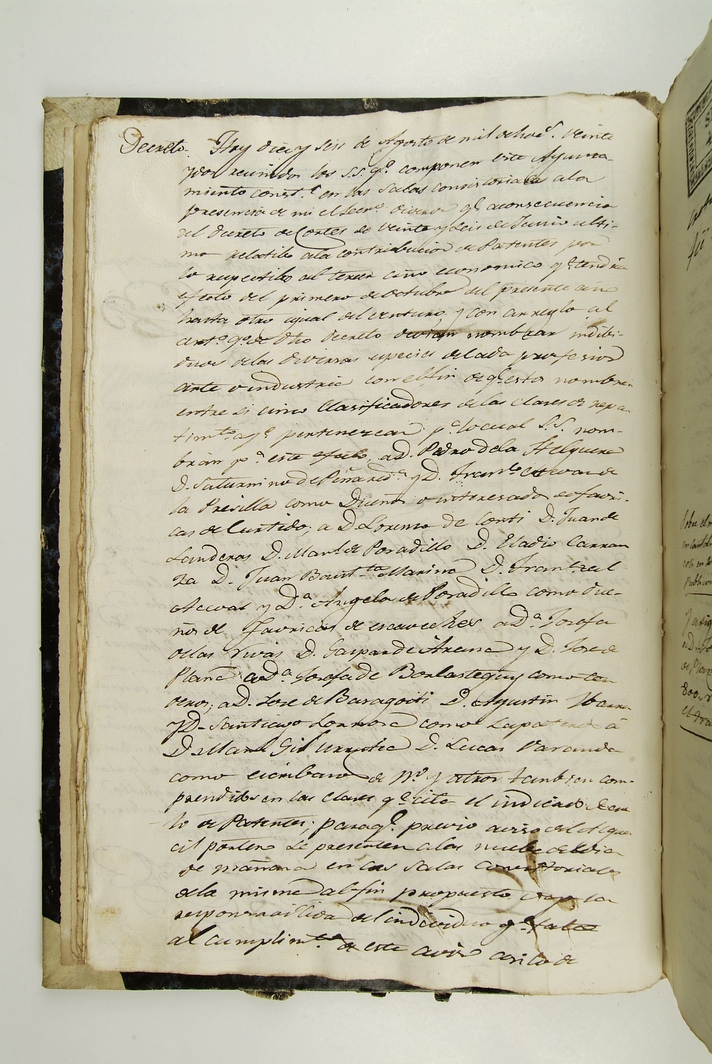 Decreto. Hoy diez y seis de Agosto de mil ochos. veinte
y dos reunidos los S.S. q.e componen este Ayunta
miento const.l en las Salas consistoriales a la
presencia de mi el Secr.o dijeron q.e a consecuencia
del Decreto de Cortes de veinte y seis de Junio ulti-
mo relatibo a la contribucion de Patentes por
lo respectibo al tercer año economico q.e tendrá
efecto del primero de Octubre del presente año
hasta otro igual del venturo, y con arreglo al
art.o 9.o de dho Decreto devian nombrar indibi-
duos de las diversas especies de cada profesion
arte o industria con el fin de q.e estos nombren
entre si cinco Clasificadores de las clases de repa-
timt.o a q.e pertenezcan p.a lo cual S.S. nom-
bran p.a este efecto, a D. Pedro de la Helguera
D. Saturnino de Peñaredd.a y D. Fran.co Cuevas de
la Presilla como Dueños o interesados de favri-
cas de Curtido, a D. Lorenzo de Conti D. Juan de
Landeras D. Man.l de Poradillo D. Eladio Carran
za D. Juan Baut.ta Marina D. Fran.co del
Acevas y D.a Angela de Poradillo como Due-
ños de Favricas de escaveches a D.a Josefa
de las Rivas D. Gaspar de Arena y D. Jose de
Plan a D.a Josefa de Bonlastegui como ten
deros; a D. Jose de Baragoiti D. Agustin Ybarra
y D. Santiago Lonnora como Zapateros á
D. Man.l Gil Urrutia D. Lucas Varanda
como escribanos de N.o y otros tambien com-
prendidos en las clases q.e cita el indicado Decre
to de Patentes; para q.e previo aviso del Algua
cil portero se presenten a las nuebe del dia
de mañana en las Salas Consistoriales
de la misma al fin propuesto bajo la
responsavilidad del individuo q.e falte
al cumplimt.o de este aviso